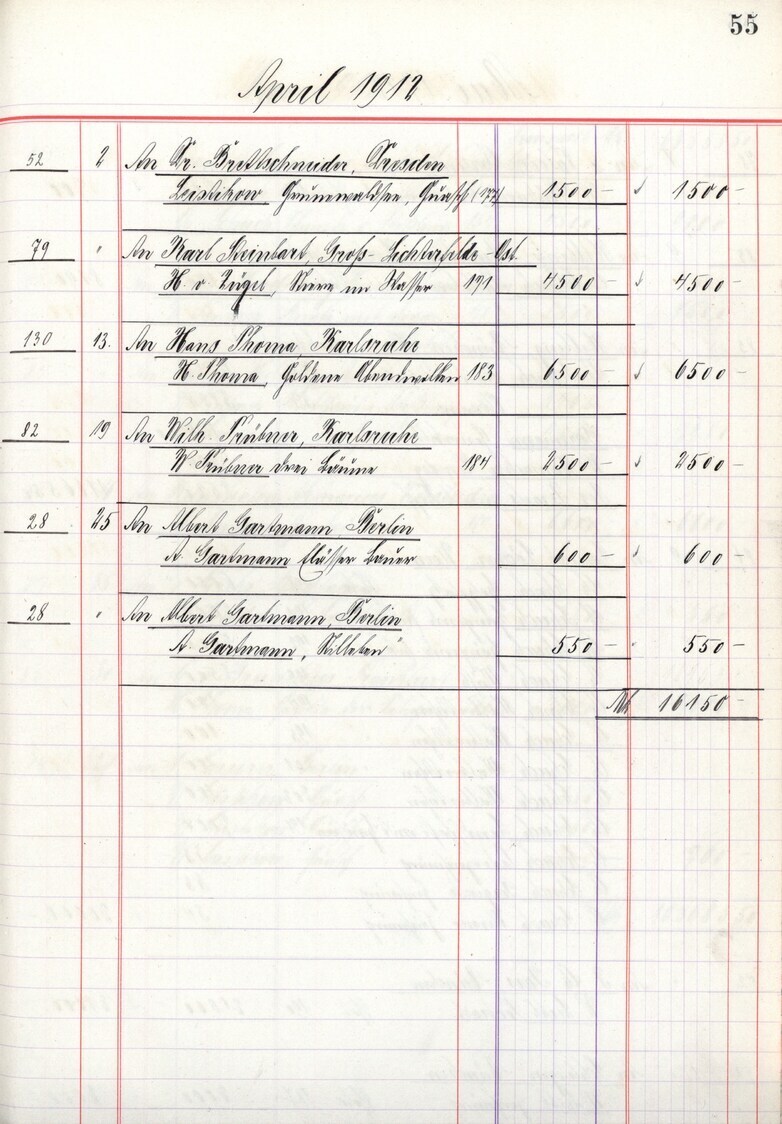 55
April 1912
52 2 An Dr. Brettschneider, Dresden
Leistikow Grunewaldsee, Guasch (177) 1500 — 1500 —
79 " An Karl Steinbart, Groß-Lichterfelde-Ost.
H. v. Zügel, Stiere im Wasser 191 4500 — 4500 —
130 13. An Hans Thoma, Karlsruhe
H. Thoma, Goldene Abendwolken 183 6500 — 6500 —
82 19 An Wilh. Trübner, Karlsruhe
W. Trübner drei Bäume 184 2500 — 2500 —
28 25 An Albert Gartmann, Berlin
A. Gartmann Elsässer Bauer 600 — 600 —
28 " An Albert Gartmann, Berlin
A. Gartmann, „Stilleben" 550 — 550 —
Mk 16150 —